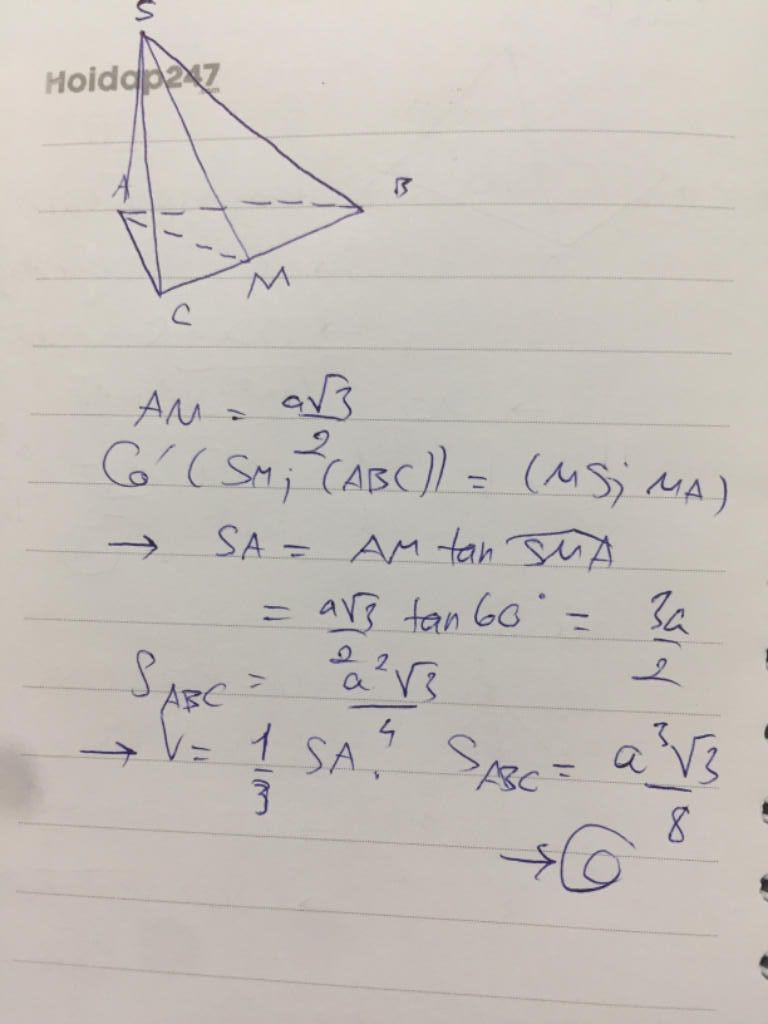 S
Hoidap247
A
B
M
C
AM = a√3/2
Có (SM; (ABC)) = (MS; MA)
→ SA = AM tan SMA
= a√3/2 tan 60° = 3a/2
S_ABC = a²√3/4
→ V = 1/3 SA. S_ABC = a³√3/8
→